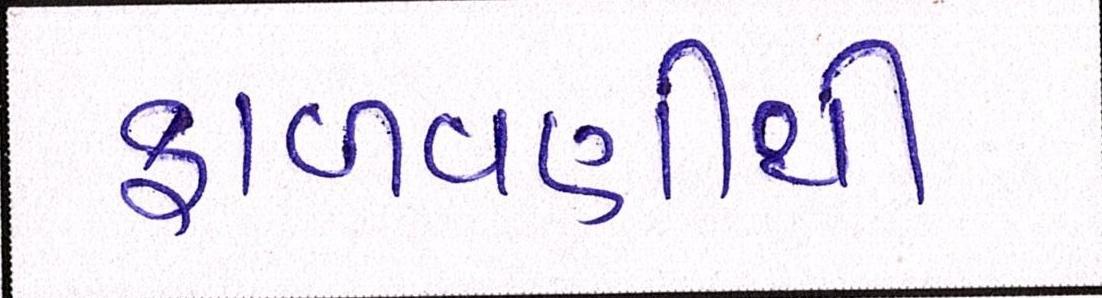 ફાળવણીથી